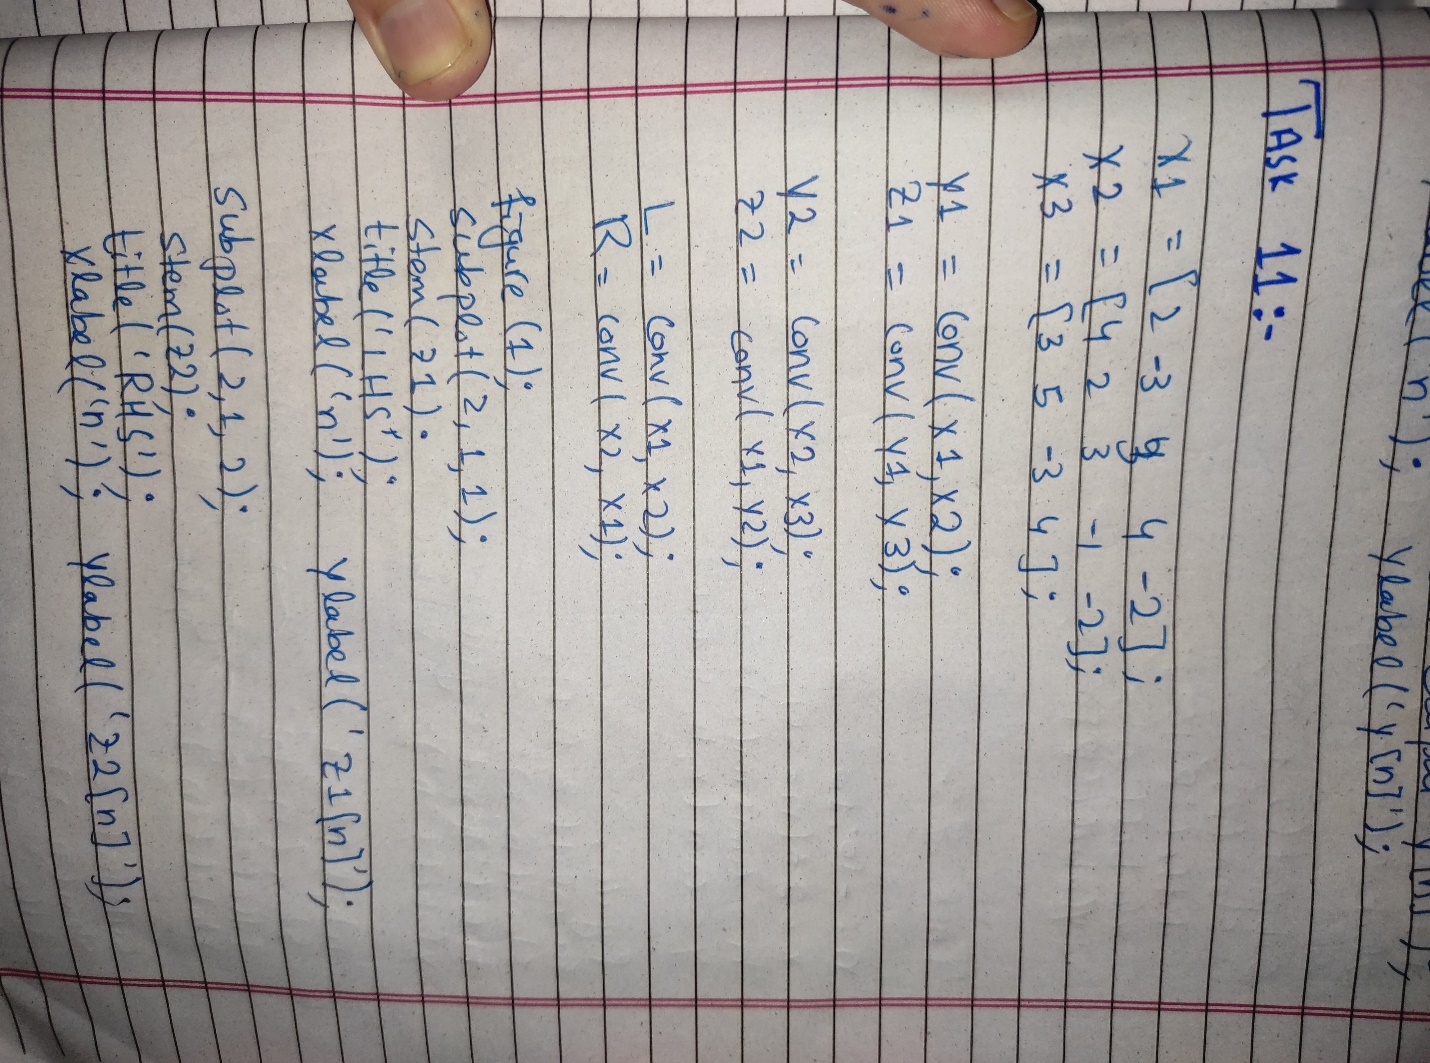 ylabel('y[n]');
n');
TASK 11:-
x1 = [2 -3 4 4 -2];
x2 = [4 2 3 -1 -2];
x3 = [3 5 -3 4];
y1 = conv(x1,x2);
z1 = conv(y1, y3);
y2 = conv(x2, x3);
z2 = conv(x1, y2);
L = conv(x1, x2);
R = conv(x2, x1);
figure(1);
subplot(2,1,1);
stem(z1);
title('LHS');
xlabel('n'); ylabel('z1[n]');
subplot(2,1,2);
stem(z2);
title('RHS');
xlabel('n'); ylabel('z2[n]');